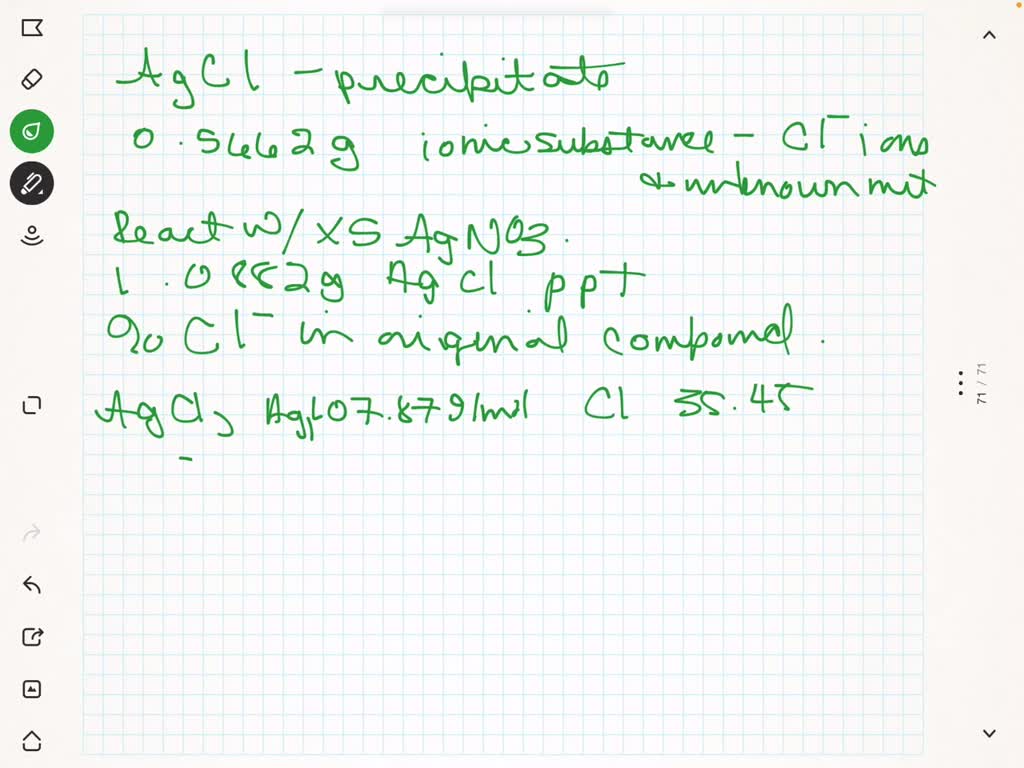 AgCl - precipitate
0.5662g ionic substance - Cl⁻ ions
& unknown met
React w/ XS AgNO3.
1.0882g AgCl ppt
% Cl⁻ in original compound.
AgCl, Ag 107.87g/mol Cl 35.45
-
71 / 71